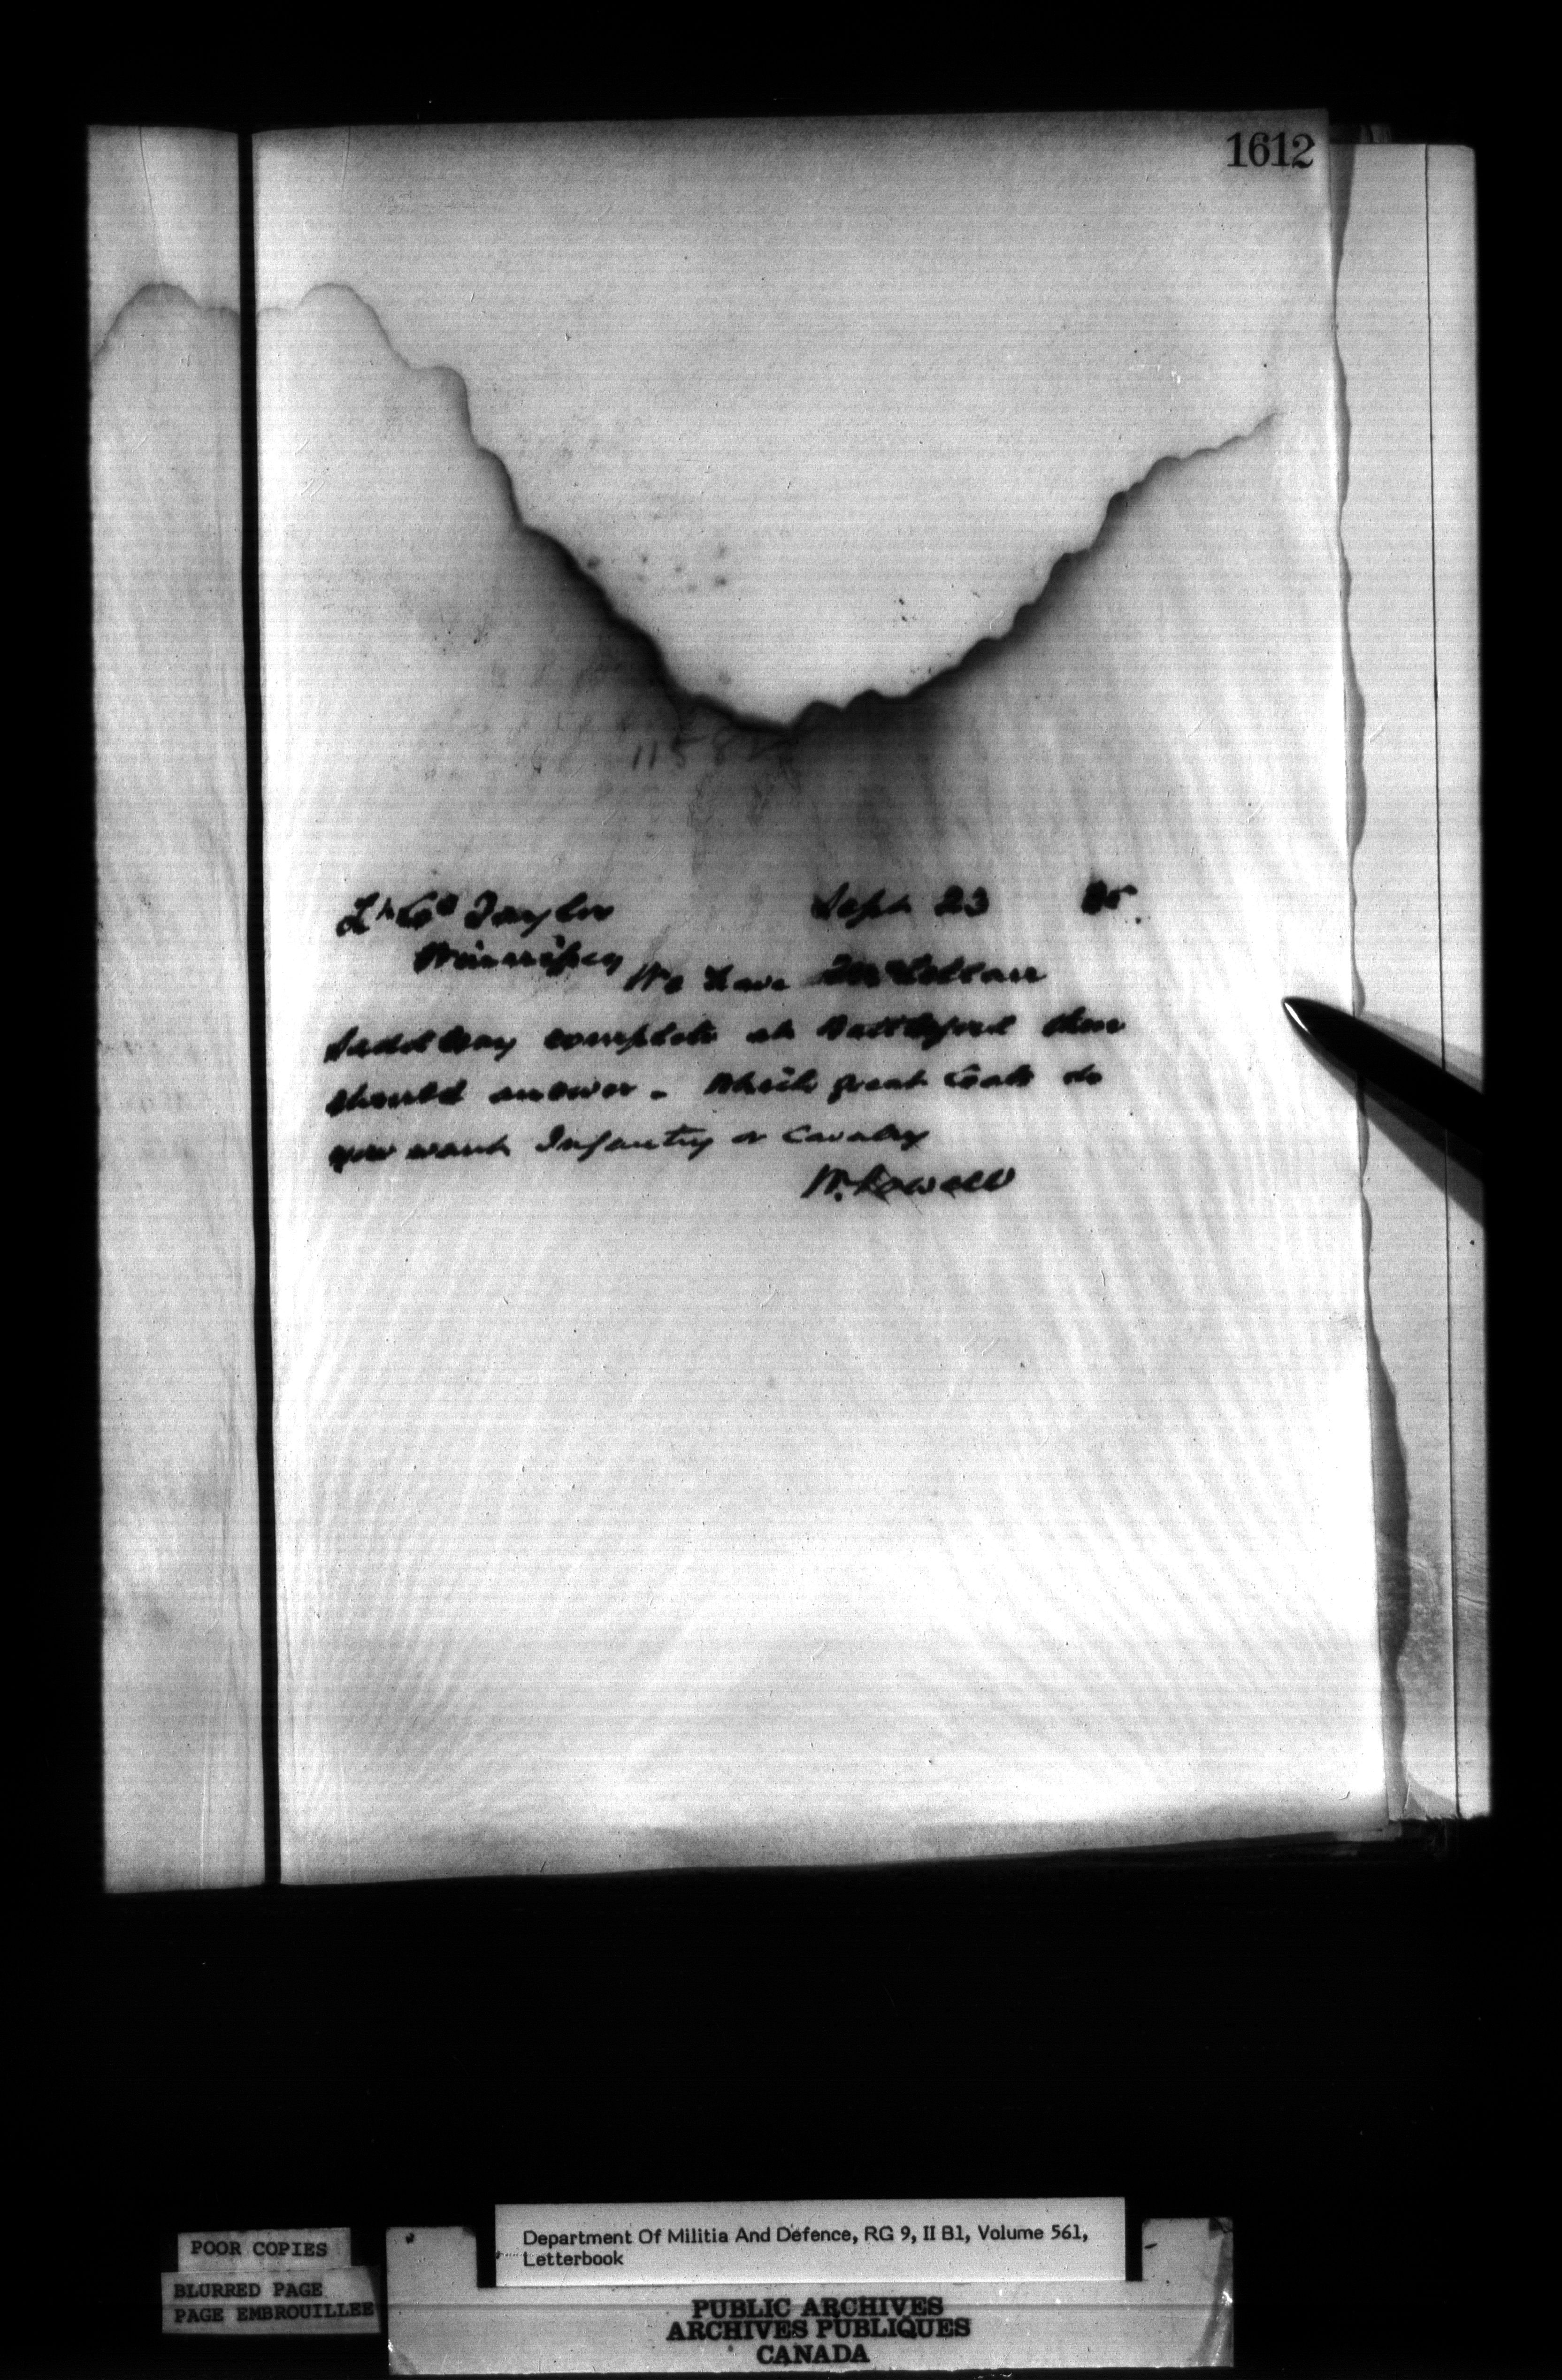 1612
1158
Lt Col Taylor Sept 23 85.
Winnipeg
We have McClellan
Saddlery complete at Battleford
should answer. Which great Coats do
you want Infantry or Cavalry
W. Powell
POOR COPIES
BLURRED PAGE
PAGE EMBROUILLEE
Department Of Militia And Defence, RG 9, II B1, Volume 561,
Letterbook
PUBLIC ARCHIVES
ARCHIVES PUBLIQUES
CANADA